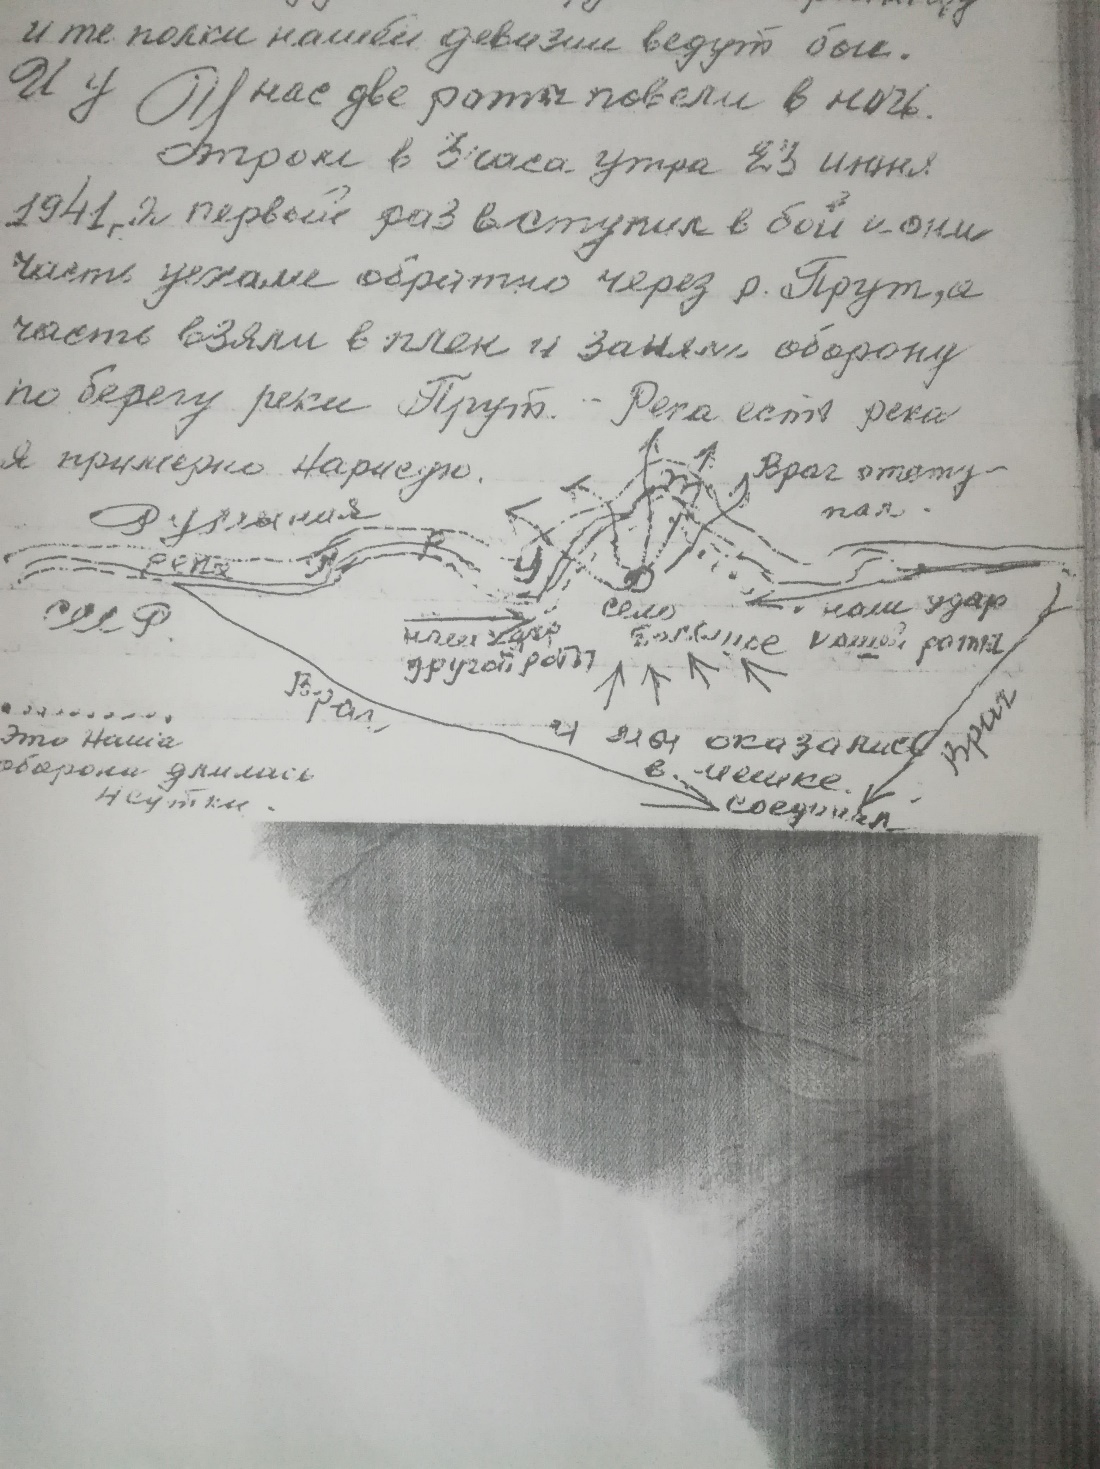 и те полки нашей девизии ведут бои.
И у нас две роты повели в ночь.
Утром в 3 часа утра 23 июня
1941г. я первый раз вступил в бой и они
часть уехали обратно через р. Прут, а
часть взяли в плен и заняли оборону
по берегу реки Прут. - Река есть река
я примерно Нарисую.
Враг отсту-
пал.
Румыния
река П Р У Т
СССР.
село
наш удар
нашей роты
наш удар
другой роты
Враг
и мы оказались
в мешке.
Враг
соединил
Это Наша
оборона длилась
4 сутки.